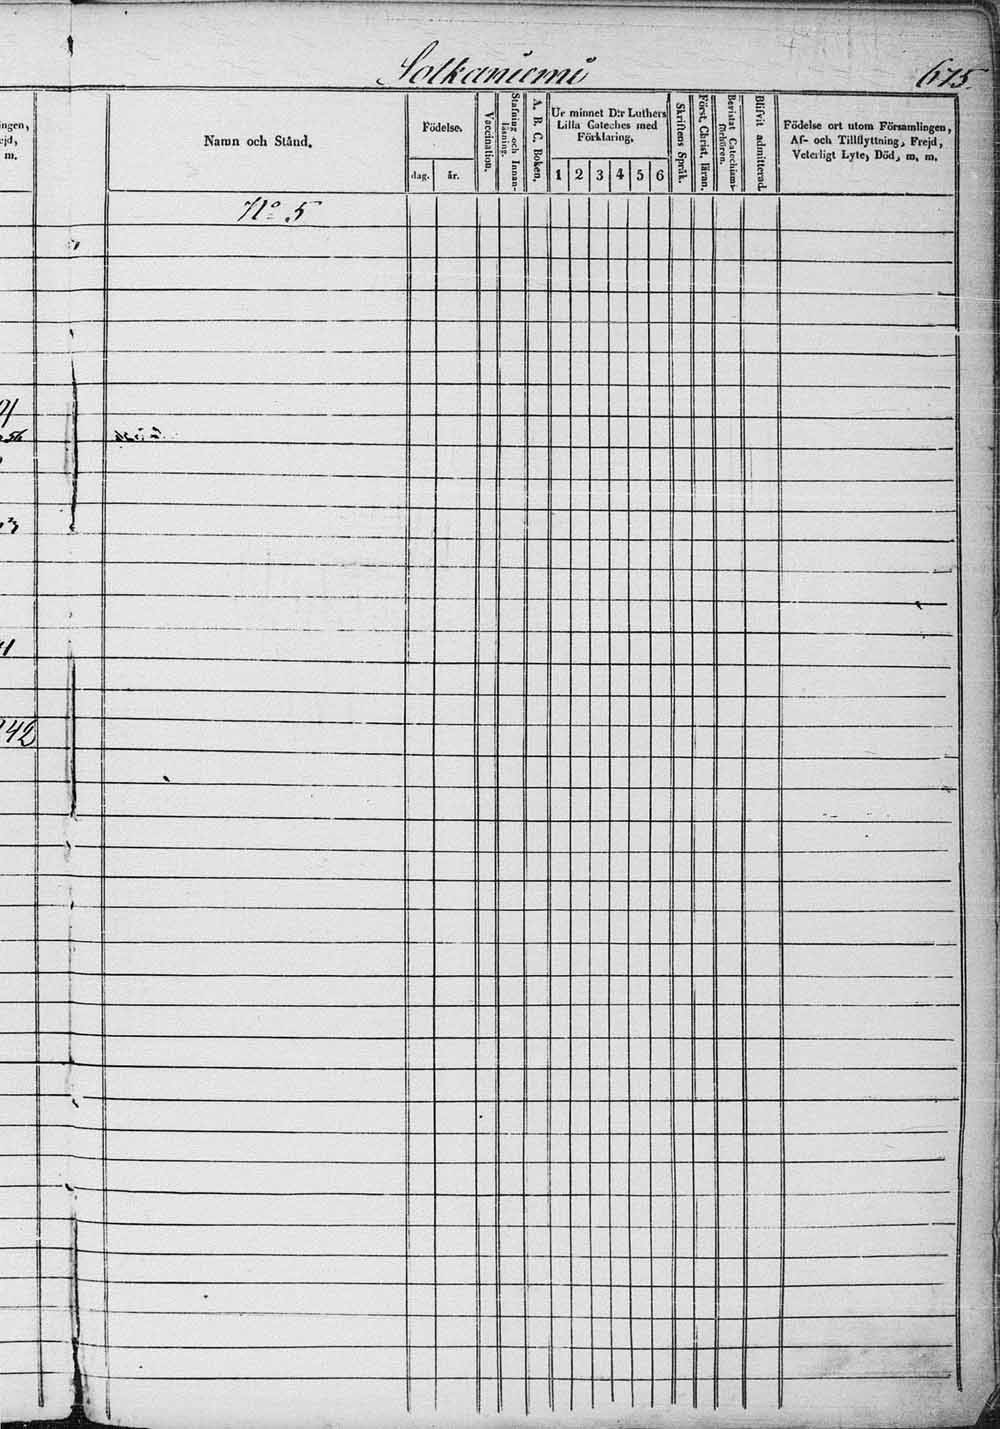 Solkaniemi 675.
ingen,
ejd,
m.
Namn och Stånd.
Födelse.
dag. år.
Vaccination.
Stafning och Innan-
läsning.
A. B. C. Boken.
Ur minnet D:r Luthers
Lilla Cateches med
Förklaring.
1 2 3 4 5 6
Skriftens Språk.
Först. Christ. läran.
Bevistat Catechismi-
förhören.
Blifvit admitterad.
Födelse ort utom Församlingen,
Af- och Tillflyttning, Frejd,
Veterligt Lyte, Död, m. m.
No 5
42